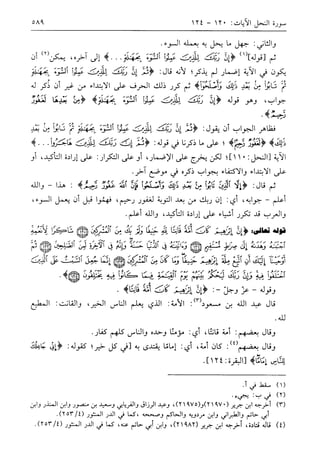 سورة النحل الآيات: ١٢٠ - ١٢٤
٥٨٩
والثاني: جهل ما يحل به بعمله السوء.
ثم [قوله](١) ﴿ثُمَّ إِنَّ رَبَّكَ لِلَّذِينَ عَمِلُوا السُّوءَ بِجَهَالَةٍ...﴾ إلى آخره، يمكن(٢) أن
يكون في الآية إضمار لم يذكر؛ لأنه قال: ﴿ثُمَّ إِنَّ رَبَّكَ لِلَّذِينَ عَمِلُوا السُّوءَ بِجَهَالَةٍ
ثُمَّ تَابُوا مِنْ بَعْدِ ذَلِكَ وَأَصْلَحُوا﴾ ثم كرر ذلك الحرف على الابتداء من غير أن ذكر له
جواب، وهو قوله ﴿إِنَّ رَبَّكَ مِنْ بَعْدِهَا لَغَفُورٌ
رَحِيمٌ﴾.
فظاهر الجواب أن يقول: ﴿ثُمَّ إِنَّ رَبَّكَ لِلَّذِينَ عَمِلُوا السُّوءَ بِجَهَالَةٍ ثُمَّ تَابُوا مِنْ بَعْدِ
ذَلِكَ﴾ ﴿لَغَفُورٌ رَحِيمٌ﴾، على ما ذكرنا في قوله: ﴿ثُمَّ إِنَّ رَبَّكَ لِلَّذِينَ هَاجَرُوا...﴾
الآية [النحل: ١١٠]؛ لكن يخرج على الإضمار، أو على التكرار: على إرادة التأكيد، أو
على الابتداء والاكتفاء بجواب ذكره في موضع آخر.
ثم قال: ﴿إِلَّا الَّذِينَ تَابُوا مِنْ بَعْدِ ذَلِكَ وَأَصْلَحُوا فَإِنَّ اللَّهَ غَفُورٌ رَحِيمٌ﴾: هذا - والله
أعلم - جوابه، أي: إن ربك من بعد التوبة لغفور رحيم، فهشوا قبل أن يعمل السوء،
والعرب قد تكرر أشياء على إرادة التأكيد، والله أعلم.
قوله تعالى: ﴿إِنَّ إِبْرَاهِيمَ كَانَ أُمَّةً قَانِتًا لِلَّهِ حَنِيفًا وَلَمْ يَكُ مِنَ الْمُشْرِكِينَ شَاكِرًا لِأَنْعُمِهِ
اجْتَبَاهُ وَهَدَاهُ إِلَى صِرَاطٍ مُسْتَقِيمٍ وَآتَيْنَاهُ فِي الدُّنْيَا حَسَنَةً وَإِنَّهُ فِي الْآخِرَةِ لَمِنَ الصَّالِحِينَ ثُمَّ
أَوْحَيْنَا إِلَيْكَ أَنِ اتَّبِعْ مِلَّةَ إِبْرَاهِيمَ حَنِيفًا وَمَا كَانَ مِنَ الْمُشْرِكِينَ إِنَّمَا جُعِلَ السَّبْتُ عَلَى الَّذِينَ
اخْتَلَفُوا فِيهِ وَإِنَّ رَبَّكَ لَيَحْكُمُ بَيْنَهُمْ يَوْمَ الْقِيَامَةِ فِيمَا كَانُوا فِيهِ يَخْتَلِفُونَ﴾.
وقوله - عز وجل -: ﴿إِنَّ إِبْرَاهِيمَ كَانَ أُمَّةً قَانِتًا﴾.
قال عبد الله بن مسعود(٣): الأمة: الذي يعلم الناس الخير، والقانت: المطيع
لله.
وقال بعضهم: أمة قانتًا، أي: مؤمنًا وحده والناس كلهم كفار.
وقال بعضهم(٤): كان أمة، أي: إمامًا يقتدى به [في كل خير؛ كقوله: ﴿إِنِّي جَاعِلُكَ
لِلنَّاسِ إِمَامًا﴾ [البقرة: ١٢٤].
(١) سقط في أ.
(٢) في ب: يجيء.
(٣) أخرجه ابن جرير (٢١٩٧٠) و(٢١٩٧٥)، وعبد الرزاق والفريابي وسعيد بن منصور وابن المنذر وابن
أبي حاتم والطبراني وابن مردويه والحاكم وصححه، كما في الدر المنثور (٢٥٣/٤).
(٤) قاله قتادة، أخرجه ابن جرير (٢١٩٨٢)، وابن أبي حاتم عنه، كما في الدر المنثور (٢٥٣/٤).